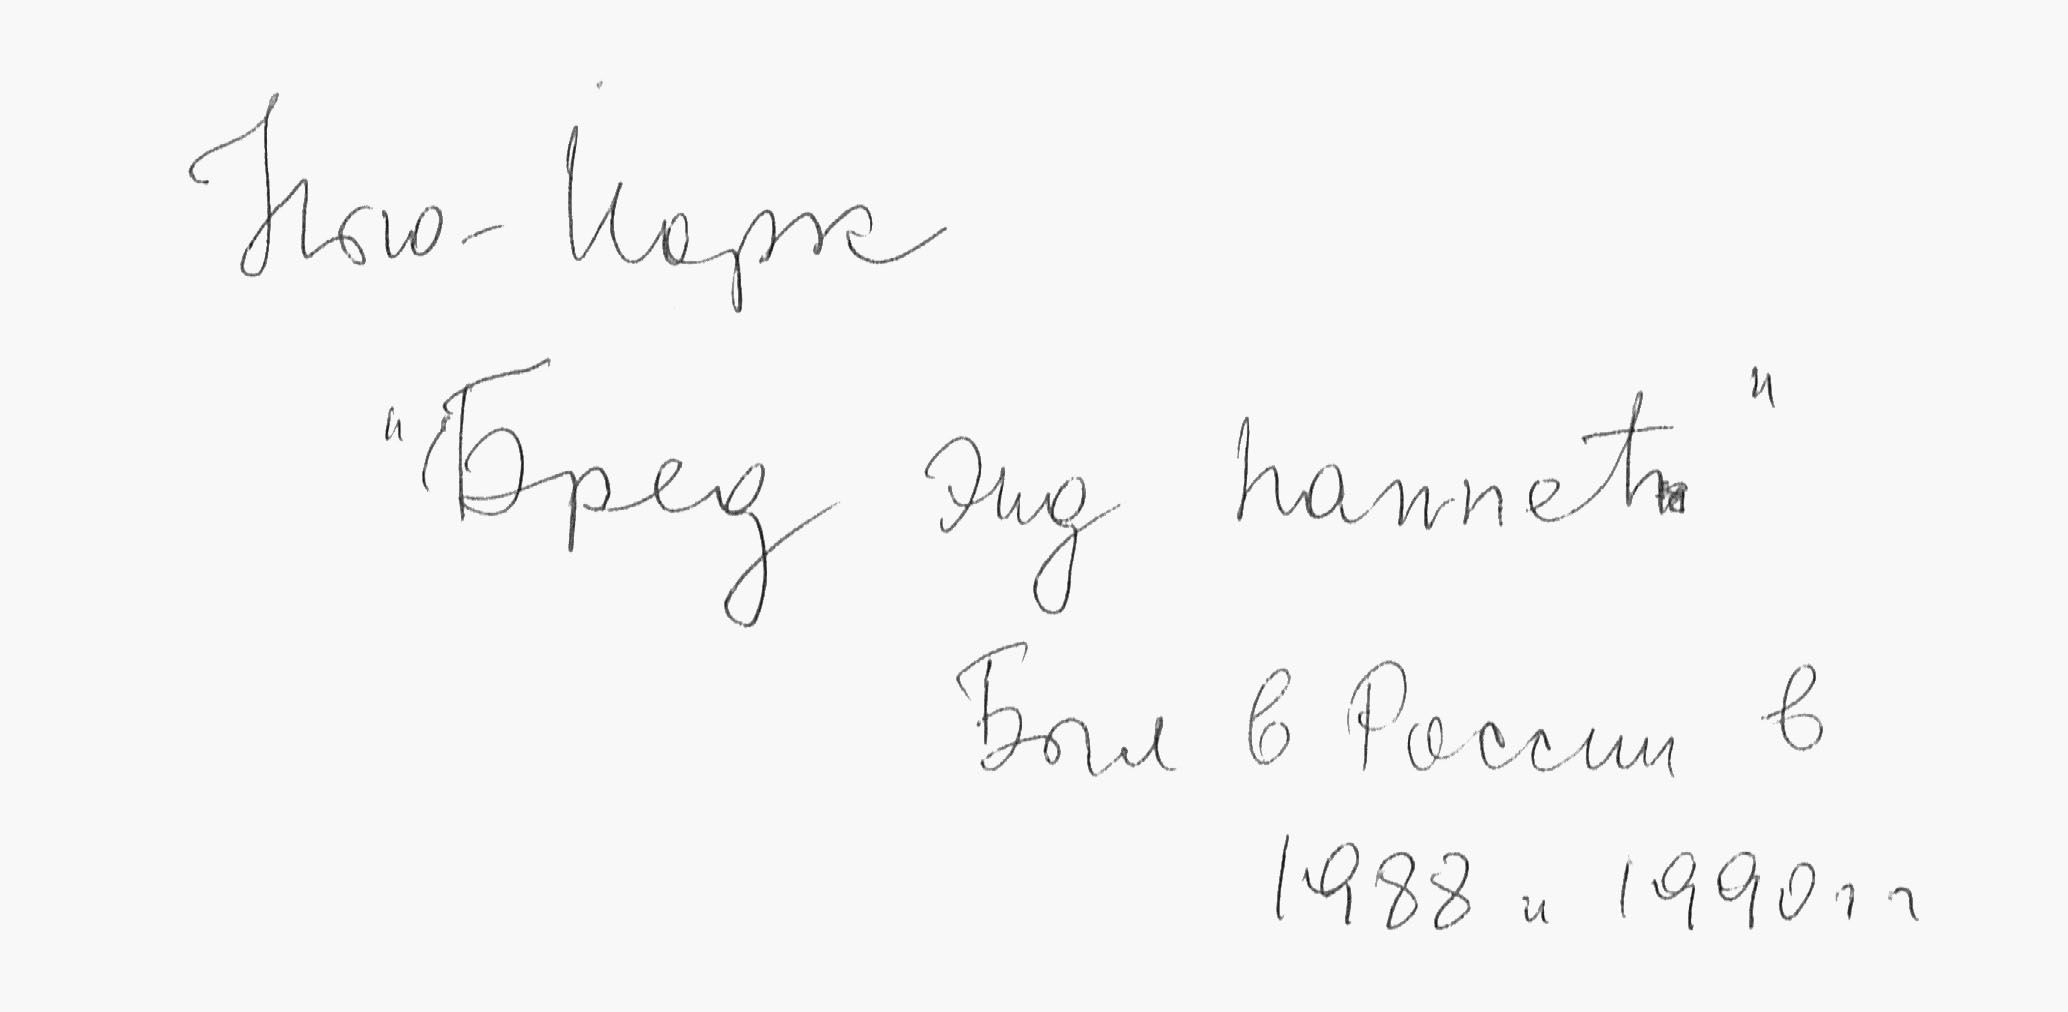 Нью-Йорк
"Бред энд паппетс"
Был в России в
1988 и 1990 г г